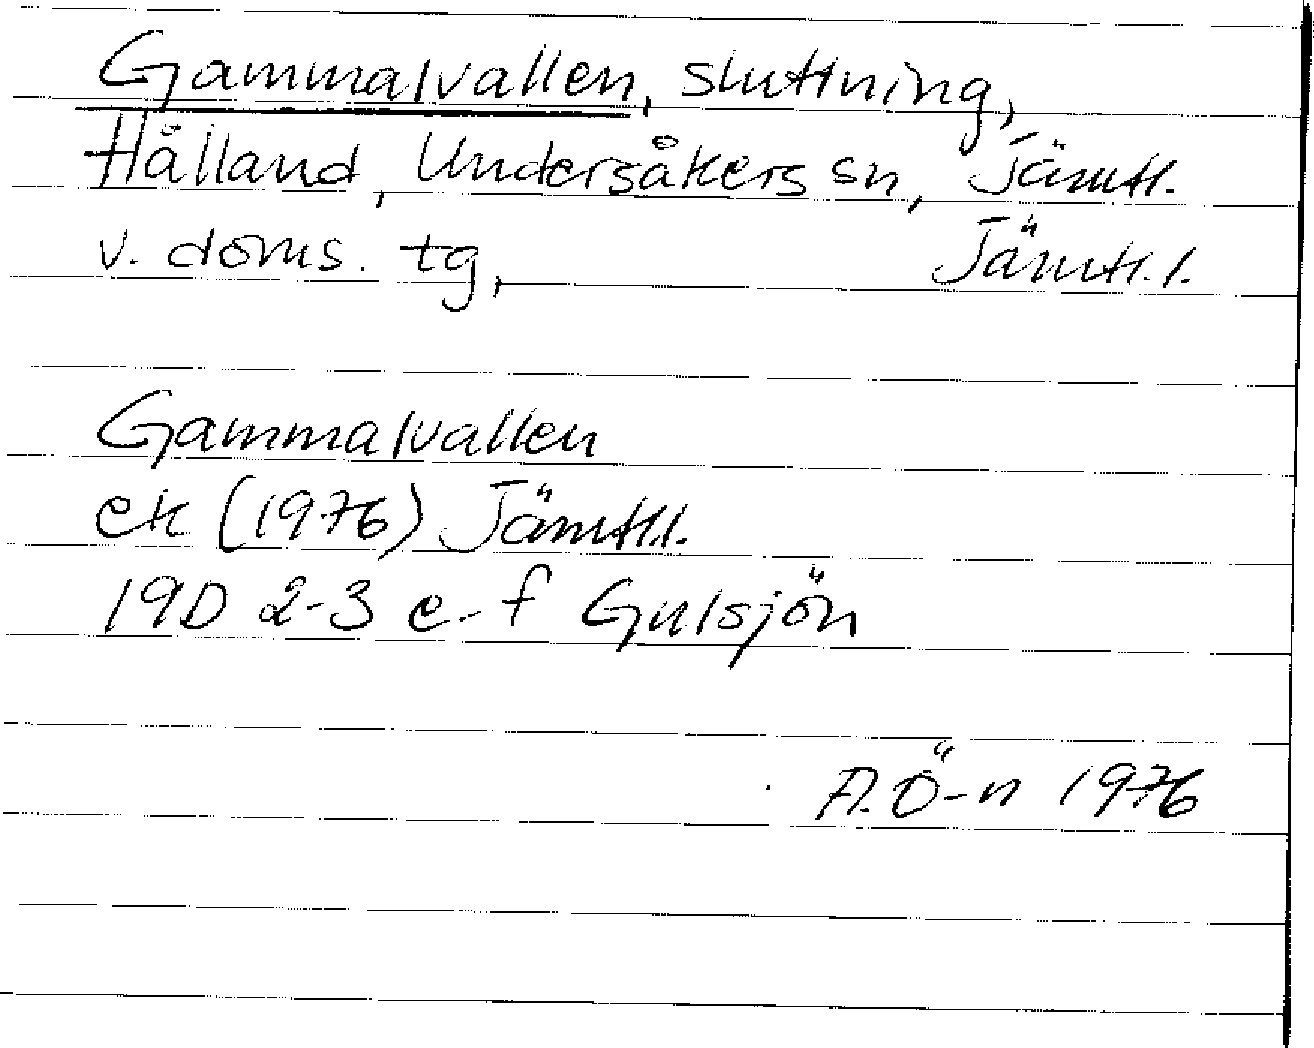 Gammalvallen, sluttning,
Hålland, Undersåkers sn, Jämtl.
v. doms. tg, Jämtl. l.
Gammalvallen
ek (1976) Jämtl.l.
19D 2-3 e-f Gulsjön
A.Ö-n 1976